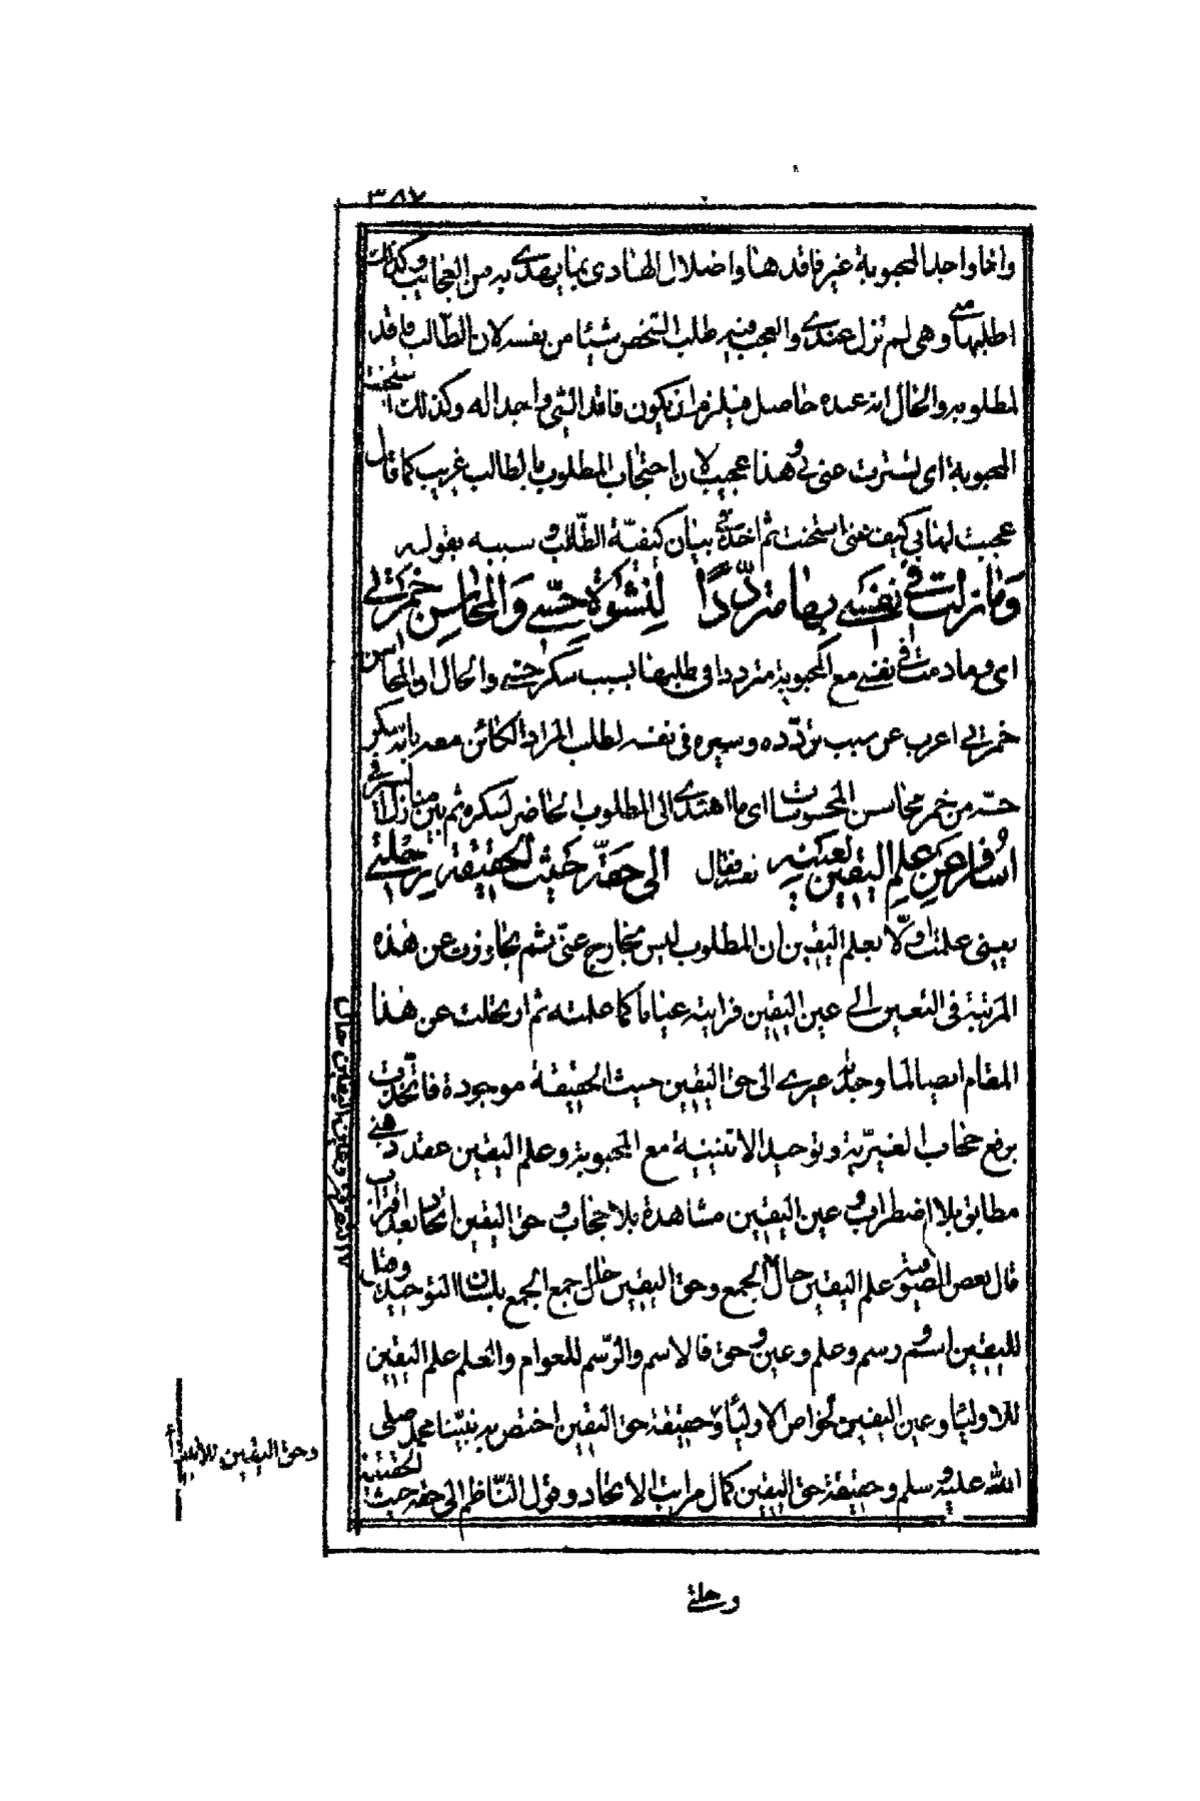 ٣٨٧
وانما واجد المحبوبة غير فاقد هنا واضلال الهادى بما يهدى به من العجائب وكذلك
اطلبها منى وهى لم تزل عندى والعجب فيه طلب الشخص شيئا من نفسه لان الطالب فاقد
لمطلوبه والحال انه عنده حاصل فيلزم ان يكون فاقد الشئ واجدا له وكذلك استجنت
المحبوبة اى تسترت عنى بى وهذا عجيب لان احتجاب المطلوب بالطالب غريب كما قال
عجبت لها بى كيف عنى استجنت ثم اخذ فى بيان كيفية الطلب وسببه بقوله
وَمازلت فى نفسى بها مترددًا لِنشوة حِسّى وَالمحاسن خمرتى
اى وما دمت فى نفسى مع المحبوبة مترددا فى طلبها بسبب سكر حسى والحال ان المحاسن
خمرتى اعرب عن سبب تردده وسيره فى نفسه لطلب المراد الكائن معه بانه سكر
حسه من خمر محاسن المحسوسات اى ما اهتدى الى المطلوب الحاضر لسكره ثم بين منازل السفر فى
نفسه فقال
اُسافر عَن علم اليقين لعينه الى حقه حَيث الحقيقة رحلتى
يعنى علمت اولا بعلم اليقين ان المطلوب ليس بخارج عنى ثم تجاوزت عن هذه
المرتبة فى التعين الى عين اليقين فرايته عيانا كما علمته ثم ارتحلت عن هذا
المقام ايضا لما وجدته غيرى الى حق اليقين حيث الحقيقة موجودة فاتحدت
برفع حجاب الغيرية وتوحيد الاثنينية مع المحبوبة وعلم اليقين عقد ذهنى
مطابق بلا اضطراب وعين اليقين مشاهدة بلا حجاب وحق اليقين اتحاد بعد اقتراب
قال بعض الصوفية علم اليقين حال الجمع وحق اليقين حال جمع الجمع بلسان التوحيد وقيل
لليقين اسم ورسم وعلم وعين وحق فالاسم والرسم للعوام والعلم علم اليقين
للاوليا وعين اليقين لخواص الاوليا وحقيقة حق اليقين اختص به نبينا محمد صلى
الله عليه وسلم وحقيقة حق اليقين كمال مراتب الاتحاد وقول الناظم الى حقه حيث الحقيقة
التفرقة وعين اليقين حال
وحق اليقين للانبيا
رحلتى